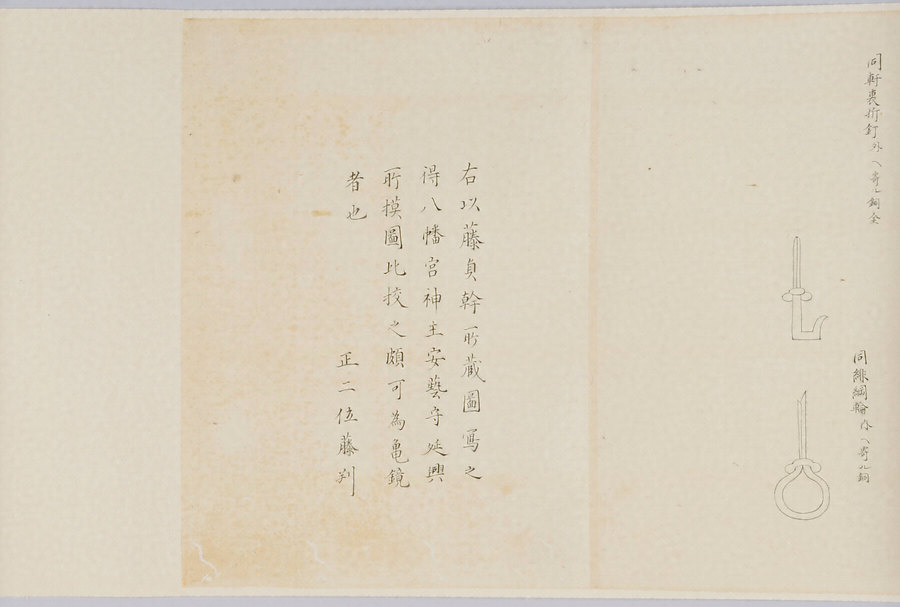 同軒裏打釘外ヘ寄ル銅金
同緋綱輪外ヘ寄ル銅
右以藤貞幹所蔵圖寫之
得八幡宮神主安藝守延興
所摸圖比挍之頗可為亀鏡
者也
正二位藤判